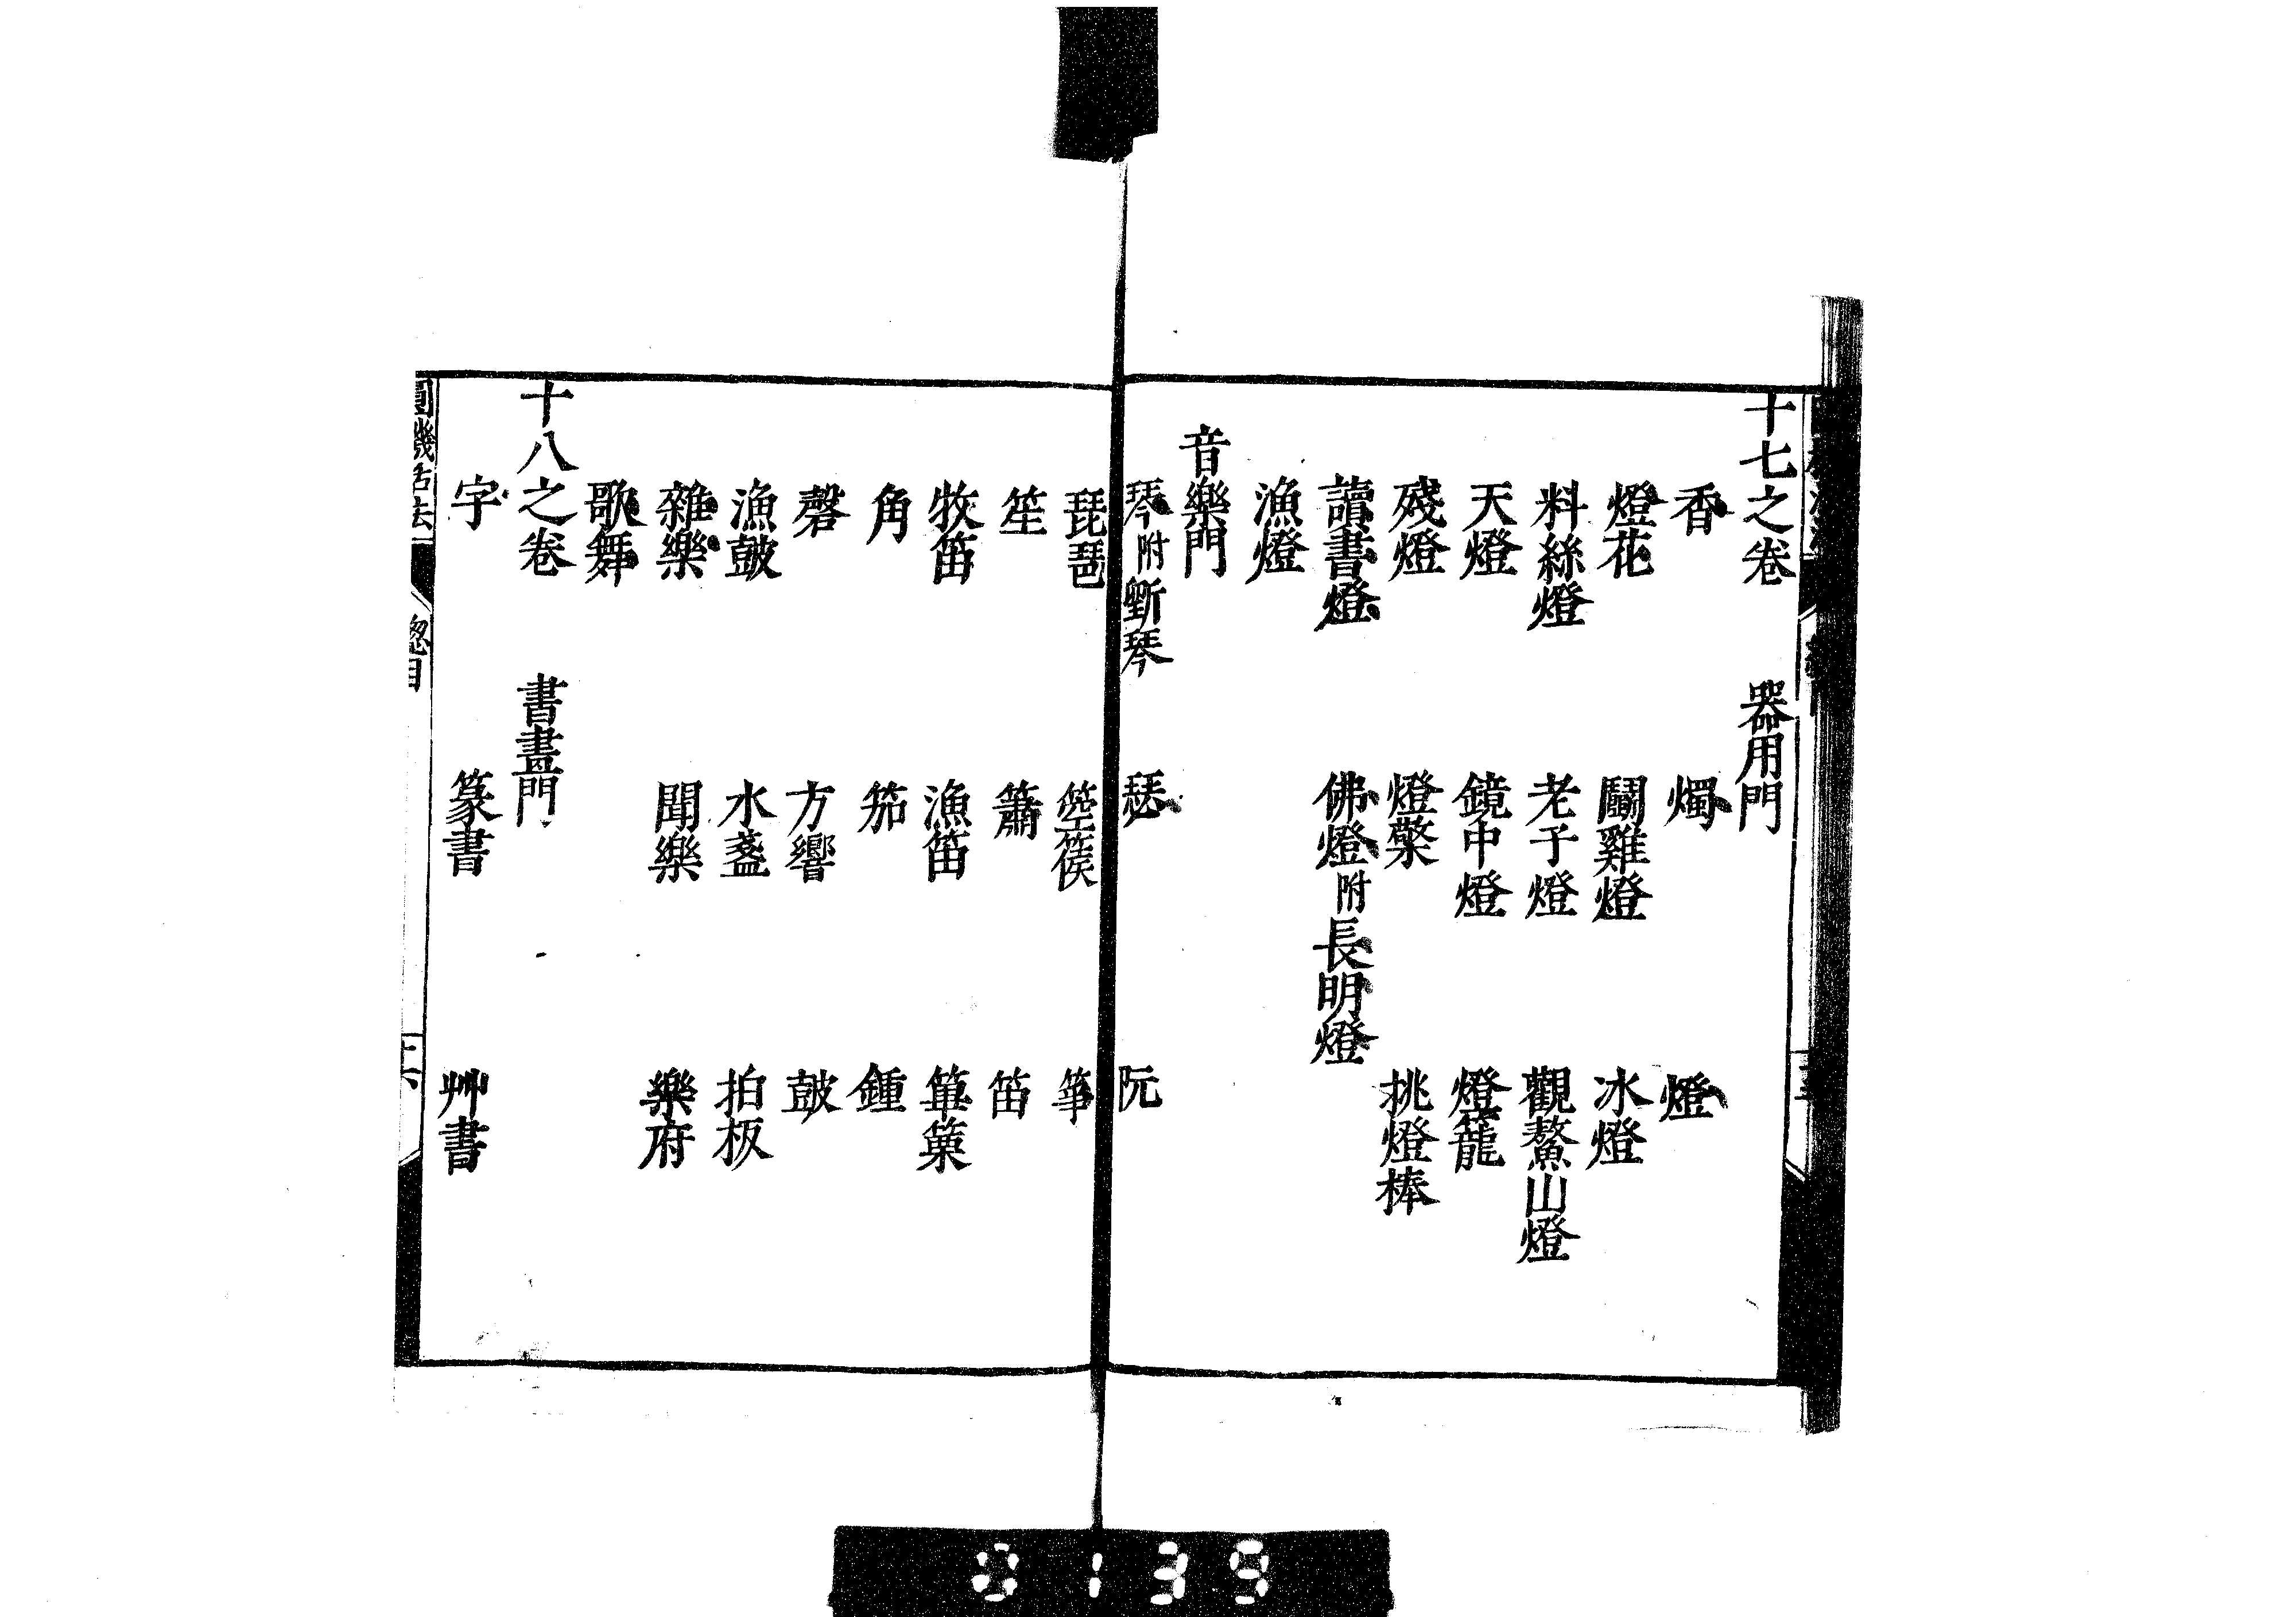 十七之卷 器用門
香 燭 燈
燈花 鬭雞燈 冰燈
料絲燈 老子燈 觀鰲山燈
天燈 鏡中燈 燈籠
殘燈 燈檠 挑燈棒
讀書燈 佛燈附長明燈
漁燈
音樂門
琴附斲琴 瑟 阮
琵琶 箜篌 箏
笙 簫 笛
牧笛 漁笛 篳篥
角 笳 鍾
磬 方響 鼓
漁鼓 水盞 拍板
雜樂 聞樂 樂府
歌舞
十八之卷 書畫門
字 篆書 艸書
圓機活法 總目 十六
0139